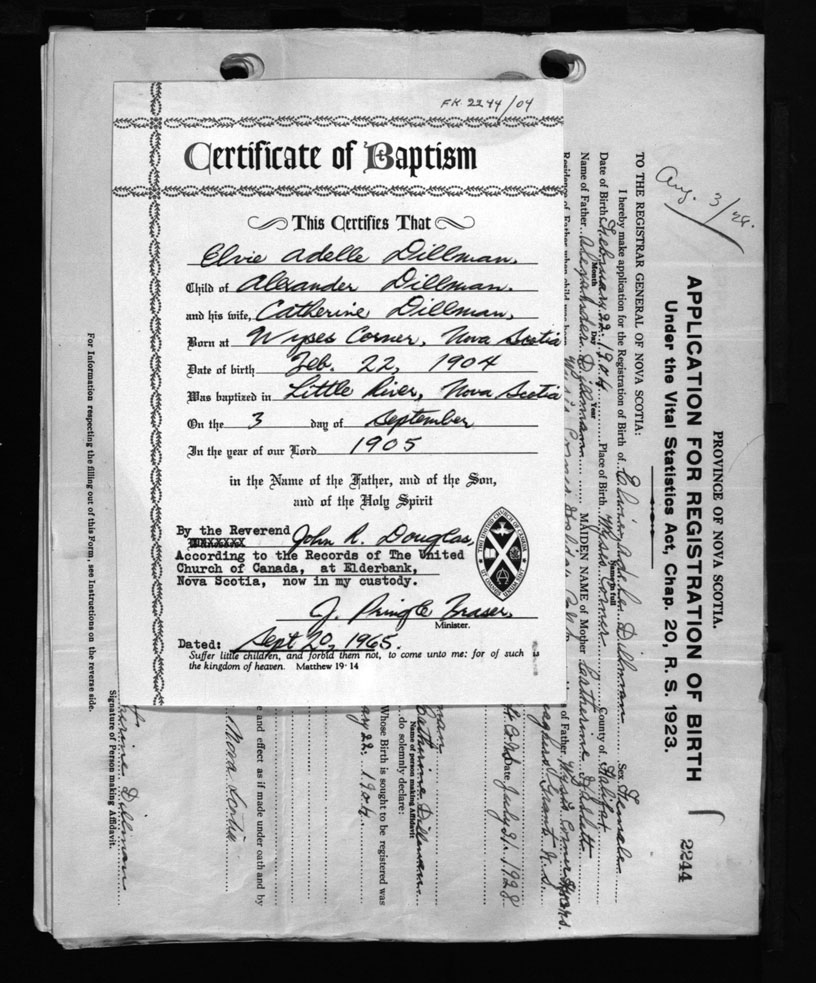 FH 2244/04
Certificate of Baptism
This Certifies That
Elvie Adelle Dillman.
Child of Alexander Dillman.
and his wife, Catherine Dillman,
Born at Wyses Corner, Nova Scotia
Date of birth Feb. 22, 1904
Was baptized in Little River, Nova Scotia
On the 3 day of September
In the year of our Lord 1905
in the Name of the Father, and of the Son,
and of the Holy Spirit
By the Reverend John R. Douglas,
According to the Records of The United
Church of Canada, at Elderbank,
Nova Scotia, now in my custody.
J. Pringle Fraser,
Minister.
Dated: Sept 20, 1965.
Suffer little children, and forbid them not, to come unto me: for of such is
the kingdom of heaven. Matthew 19-14
Aug. 3/28.
PROVINCE OF NOVA SCOTIA.
APPLICATION FOR REGISTRATION OF BIRTH
2244
Under the Vital Statistics Act, Chap. 20, R. S. 1923.
TO THE REGISTRAR GENERAL OF NOVA SCOTIA:
I hereby make application for the Registration of Birth of Dillman Sex Female
Name in full
Date of Birth February 22 1904 Place of Birth Wyses Corner County of Halifax
Month Day Year
Name of Father Alexander Dillman MAIDEN NAME of Mother Catherine
Residence of Father when child was born
of Father
Grant N.S.
Date July 31 1928
Dillman
Name of person making Affidavit
do solemnly declare:
Whose Birth is sought to be registered was
22 1904
e and effect as if made under oath and by
Nova Scotia
Dillman
Signature of Person making Affidavit.
For Information respecting the filling out of this Form, see Instructions on the reverse side.